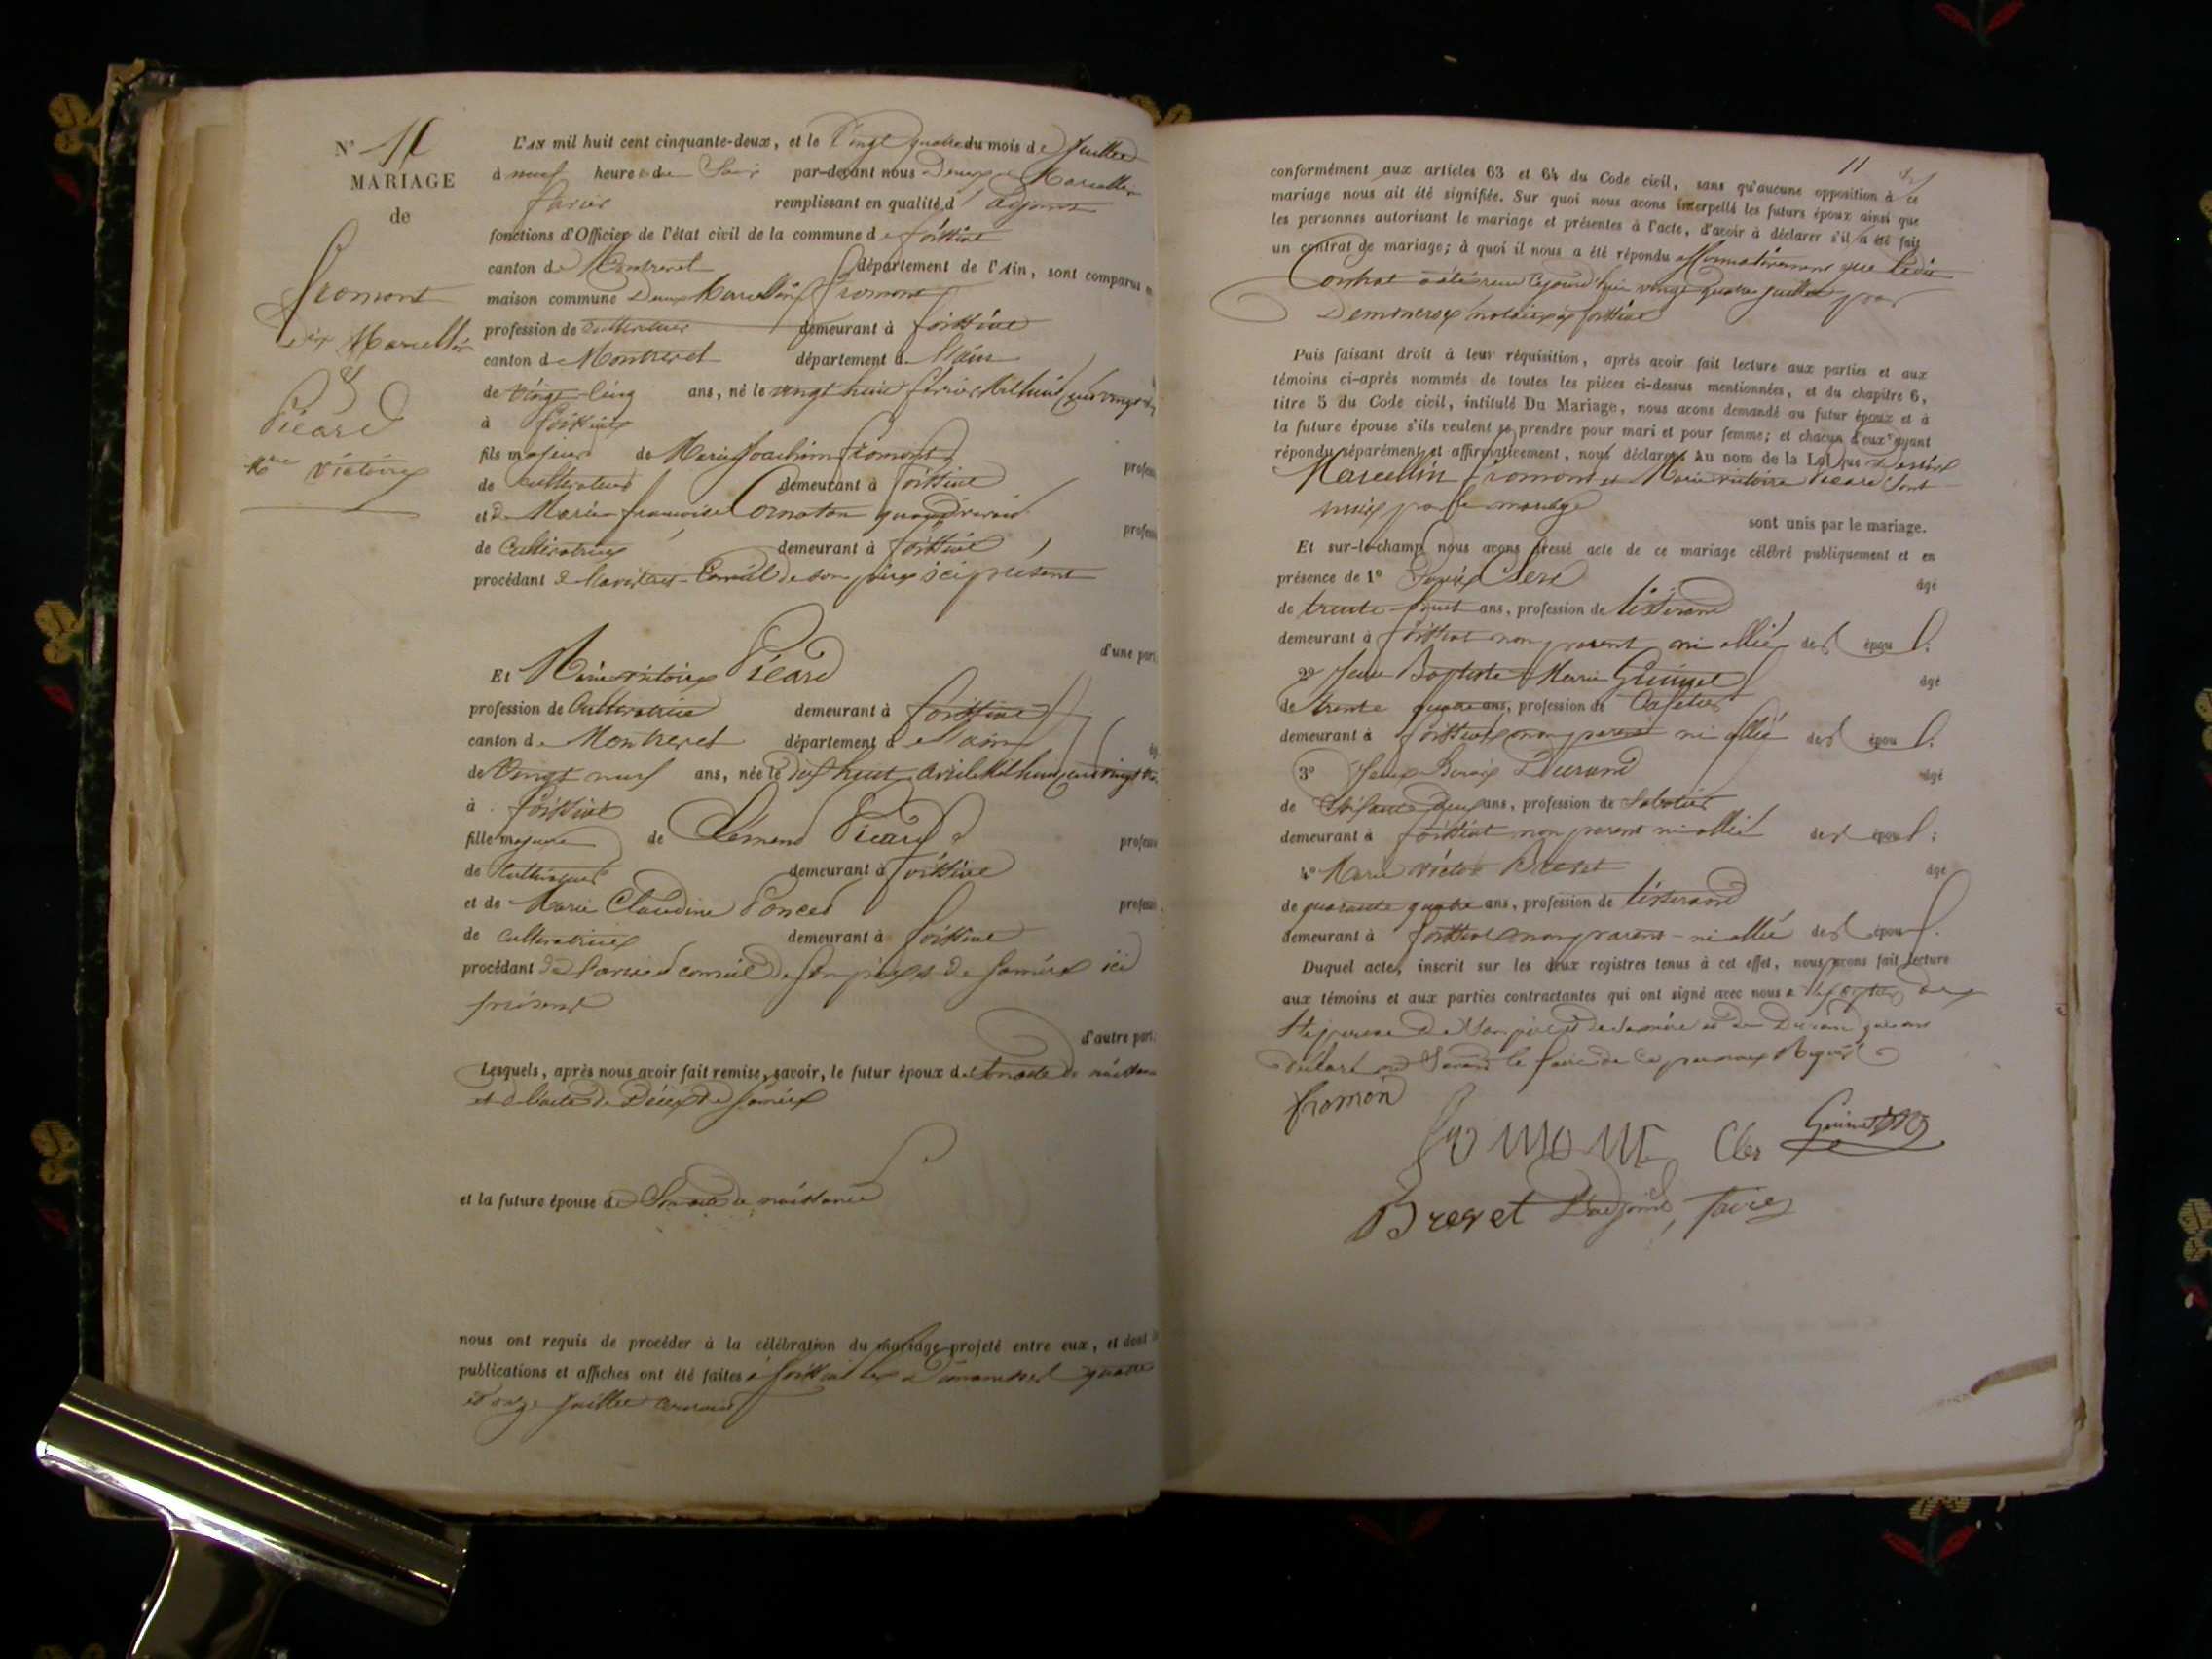 N° 11
MARIAGE
de
Fromont
Marcellin
et
Picard
Mie Victoire
L'AN mil huit cent cinquante-deux, et le Vingt quatre du mois de Juillet
à neuf heures du Soir par-devant nous Denis Marcellin
remplissant en qualité d' adjoint
fonctions d'Officier de l'état civil de la commune de foissiat
canton de Montrevel département de l'Ain, sont comparus
maison commune Marcellin fromont
profession de Cultivateur demeurant à foissiat
canton de Montrevel département de l'ain
de Vingt-cinq ans, né le vingt huit février Mil huit cent vingt
à foissiat
fils majeur de Marie Joachim fromont
de Cultivateur demeurant à foissiat
et de Marie françoise Cornaton quand vivait
de Cultivatrice demeurant à foissiat
procédant de l'avis et Conseil de son père ici présent
d'une part
Et Marie victoire Picard
profession de Cultivatrice demeurant à foissiat
canton de Montrevel département de l'ain
de Vingt neuf ans, née le dix huit avril Mil huit cent vingt
à foissiat
fille majeure de Clément Picard
de Cultivateur demeurant à foissiat
et de Marie Claudine Poncet
de Cultivatrice demeurant à foissiat
procédant de l'avis et conseil de son père et de sa mère ici
présent
d'autre part
Lesquels, après nous avoir fait remise, savoir, le futur époux de Son acte de naissance
et de l'acte de Décès de sa mère
et la future épouse de Son acte de naissance
nous ont requis de procéder à la célébration du mariage projeté entre eux, et dont
publications et affiches ont été faites à foissiat les Dimanches quatre
et onze Juillet courant
11
conformément aux articles 63 et 64 du Code civil, sans qu'aucune opposition à ce
mariage nous ait été signifiée. Sur quoi nous avons interpellé les futurs époux ainsi que
les personnes autorisant le mariage et présentes à l'acte, d'avoir à déclarer s'il a été fait
un contrat de mariage; à quoi il nous a été répondu affirmativement que ledit
Contrat a été reçu Cejourd'hui vingt quatre juillet par
notaire à foissiat
Puis faisant droit à leur réquisition, après avoir fait lecture aux parties et aux
témoins ci-après nommés de toutes les pièces ci-dessus mentionnées, et du chapitre 6,
titre 5 du Code civil, intitulé Du Mariage, nous avons demandé au futur époux et à
la future épouse s'ils veulent se prendre pour mari et pour femme; et chacun d'eux ayant
répondu séparément et affirmativement, nous déclarons Au nom de la Loi que
Marcellin fromont et Marie victoire Picard Sont
unis par le mariage
sont unis par le mariage.
Et sur-le-champ nous avons dressé acte de ce mariage célébré publiquement et en
présence de 1° âgé
de trente huit ans, profession de tisserand
demeurant à foissiat non parent ni allié des époux.
2° Jean Baptiste Marie Guimet âgé
de trente quatre ans, profession de Cafetier
demeurant à foissiat non parent ni allié des époux.
3° Durand âgé
de ans, profession de Sabotier
demeurant à foissiat non parent ni allié des époux;
4° Marie victor Brevet âgé
de quarante quatre ans, profession de tisserand
demeurant à foissiat non parent ni allié des époux.
Duquel acte, inscrit sur les deux registres tenus à cet effet, nous avons fait lecture
aux témoins et aux parties contractantes qui ont signé avec nous à l'exception de
l'épouse de Son père et de sa mère et de Durand qui ont
déclaré ne Savoir le faire de ce par nous Requis
fromon
fromont Cler Guimet
Brevet L'adjoint, favier